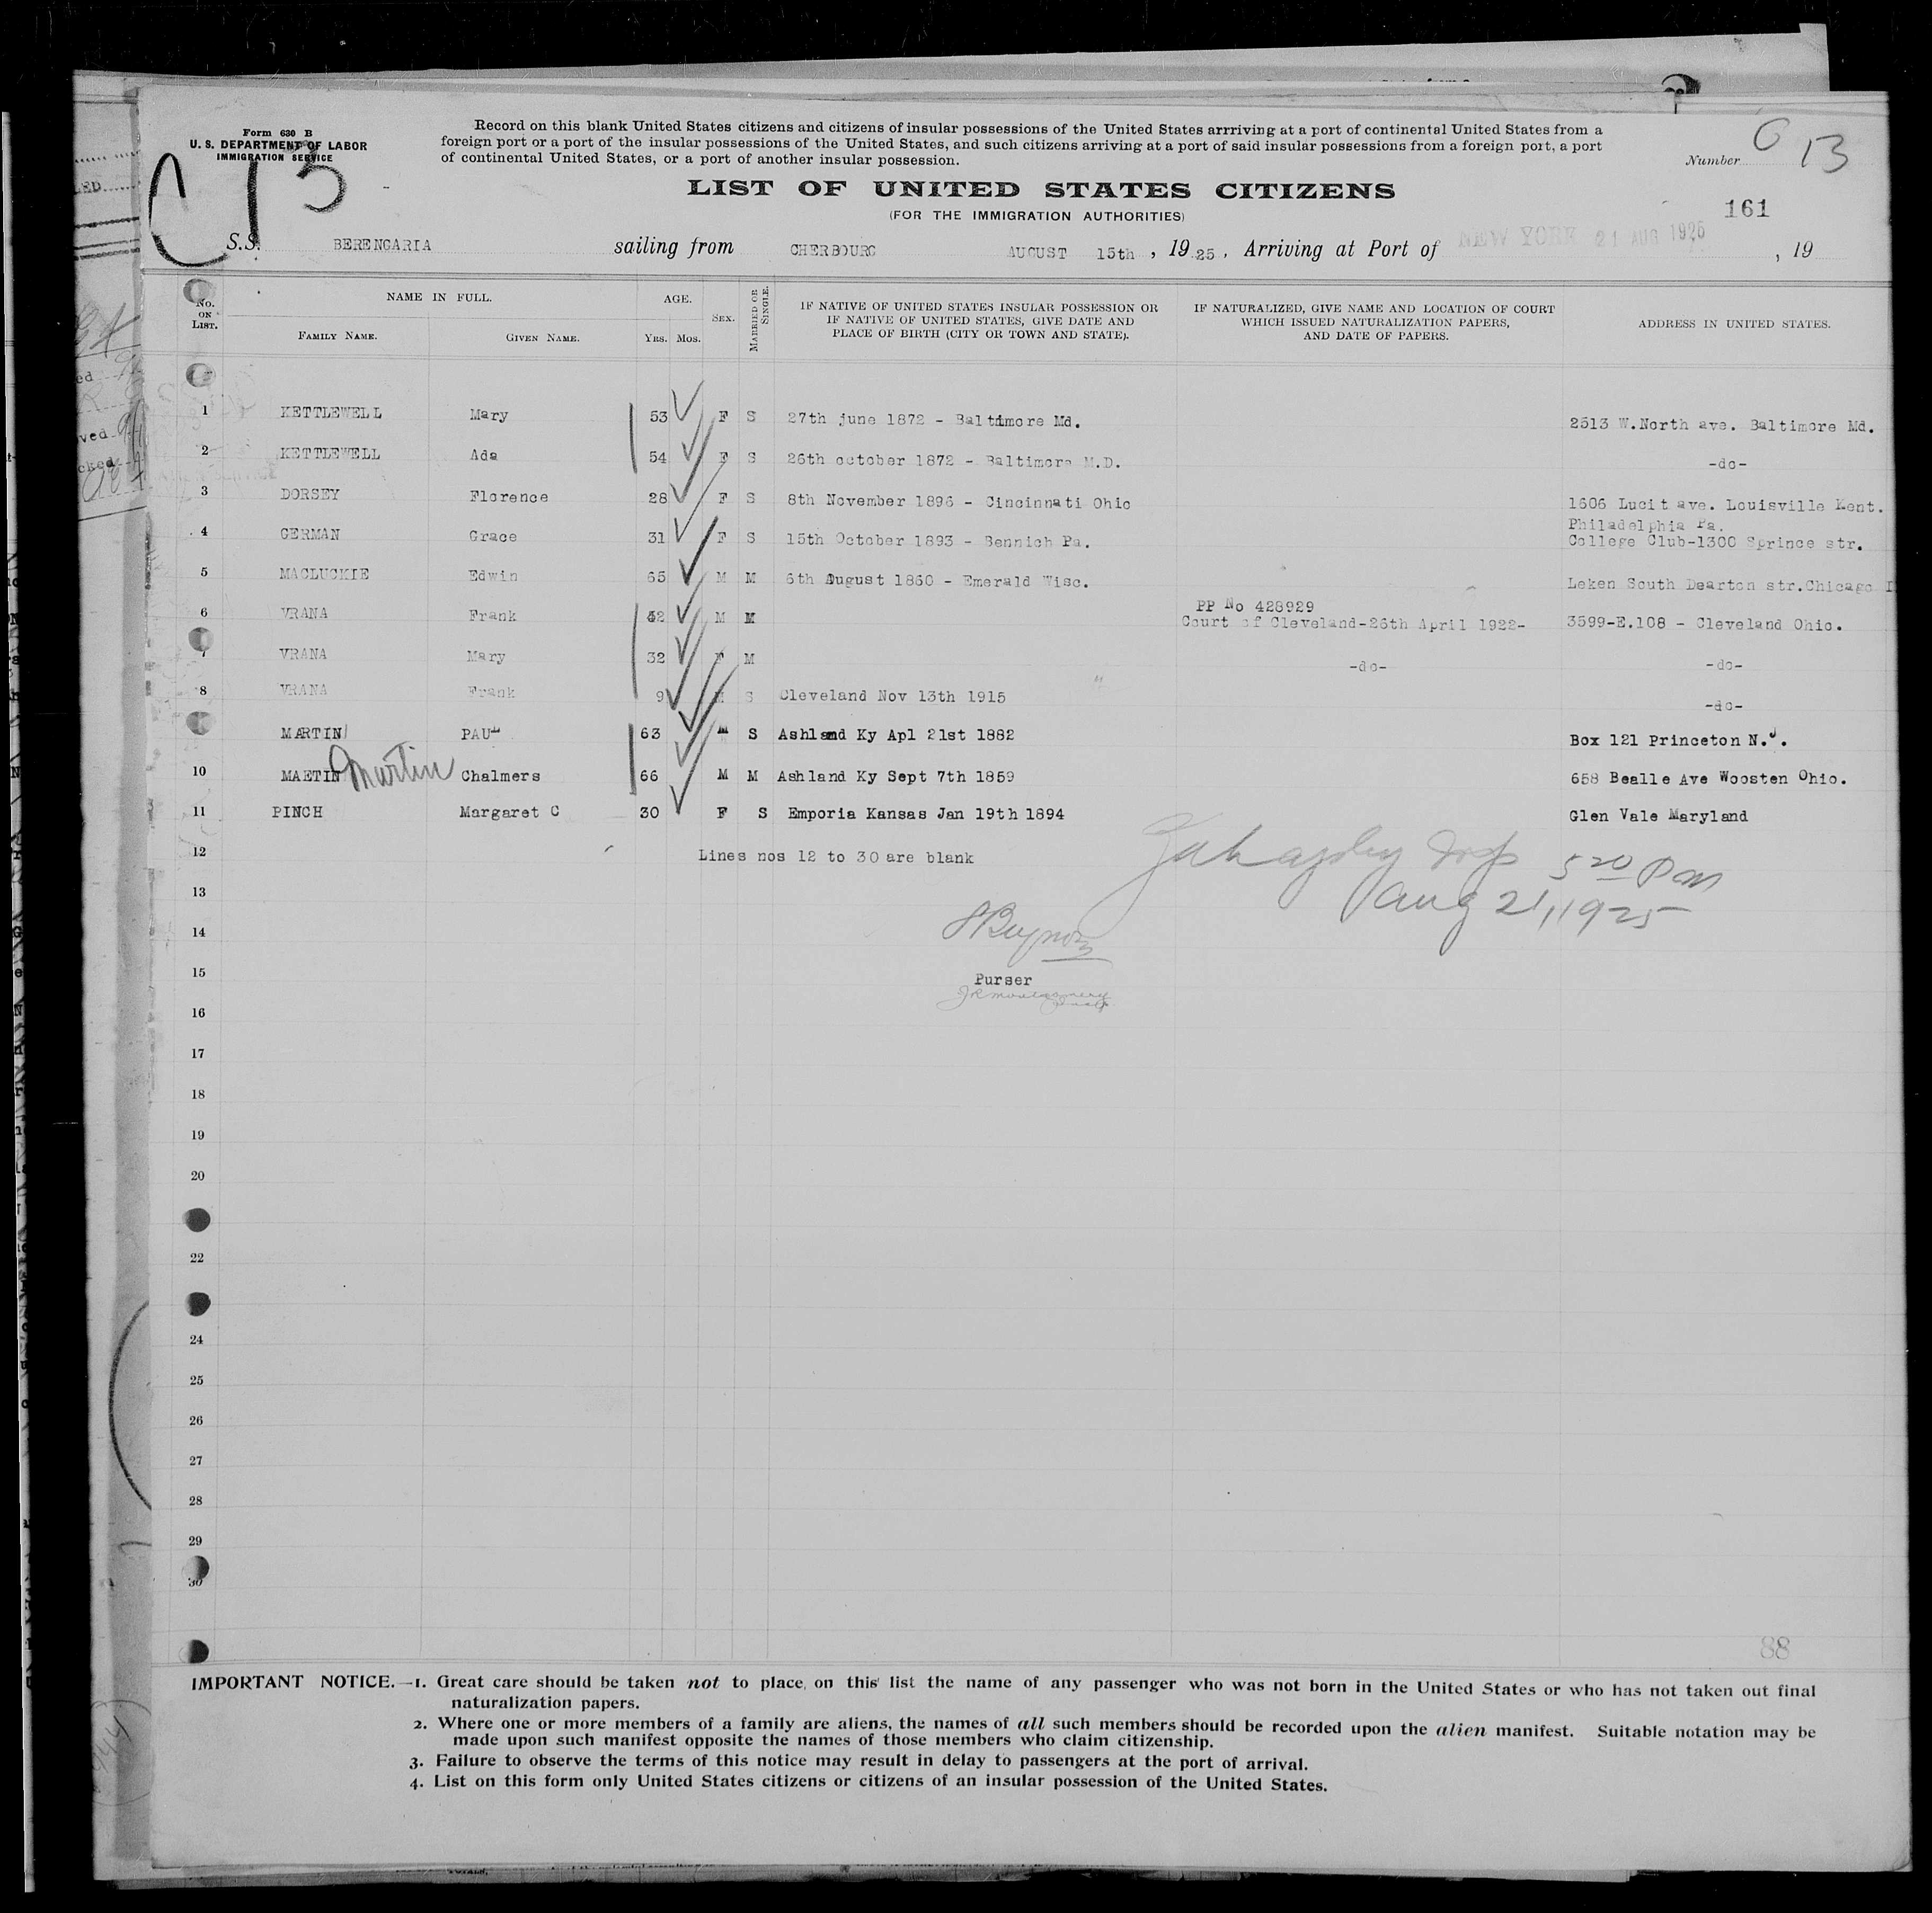 Form 630 B
U. S. DEPARTMENT OF LABOR
IMMIGRATION SERVICE
C 13
Record on this blank United States citizens and citizens of insular possessions of the United States arrriving at a port of continental United States from a
foreign port or a port of the insular possessions of the United States, and such citizens arriving at a port of said insular possessions from a foreign port, a port
of continental United States, or a port of another insular possession.
Number 13
LIST OF UNITED STATES CITIZENS
(FOR THE IMMIGRATION AUTHORITIES)
161
S.S. BERENGARIA sailing from CHERBOURG AUGUST 15th , 19 25 , Arriving at Port of NEW YORK 21 AUG 1925 , 19
No. ON LIST. NAME IN FULL. FAMILY NAME. GIVEN NAME. AGE. YRS. MOS. SEX. MARRIED OR SINGLE. IF NATIVE OF UNITED STATES INSULAR POSSESSION OR IF NATIVE OF UNITED STATES, GIVE DATE AND PLACE OF BIRTH (CITY OR TOWN AND STATE). IF NATURALIZED, GIVE NAME AND LOCATION OF COURT WHICH ISSUED NATURALIZATION PAPERS, AND DATE OF PAPERS. ADDRESS IN UNITED STATES.
1 KETTLEWELL Mary 53 F S 27th june 1872 - Baltimore Md. 2513 W.North ave. Baltimore Md.
2 KETTLEWELL Ada 54 F S 26th october 1872 - Baltimore M.D. -do-
3 DORSEY Florence 28 F S 8th November 1896 - Cincinnati Ohio 1606 Lucit ave. Louisville Kent.
Philadelphia Pa.
4 GERMAN Grace 31 F S 15th October 1893 - Bennich Pa. College Club-1300 Sprince str.
5 MACLUCKIE Edwin 65 M M 6th August 1860 - Emerald Wisc. Leken South Dearton str.Chicago I
PP No 428929
6 VRANA Frank 42 M M Court of Cleveland-26th April 1922- 3599-E.108 - Cleveland Ohio.
7 VRANA Mary 32 F M -do- -do-
8 VRANA Frank 9 M S Cleveland Nov 13th 1915 -do-
MARTIN PAUL 63 M S Ashland Ky Apl 21st 1882 Box 121 Princeton N.J.
10 MAETIN Martin Chalmers 66 M M Ashland Ky Sept 7th 1859 658 Bealle Ave Woosten Ohio.
11 PINCH Margaret C 30 F S Emporia Kansas Jan 19th 1894 Glen Vale Maryland
12 Lines nos 12 to 30 are blank
5 20 PM
13 Aug 21, 1925
14
15 Purser
16
17
18
19
20
22
24
25
26
27
28
29
30
88
IMPORTANT NOTICE.—1. Great care should be taken not to place on this list the name of any passenger who was not born in the United States or who has not taken out final
naturalization papers.
2. Where one or more members of a family are aliens, the names of all such members should be recorded upon the alien manifest. Suitable notation may be
made upon such manifest opposite the names of those members who claim citizenship.
3. Failure to observe the terms of this notice may result in delay to passengers at the port of arrival.
4. List on this form only United States citizens or citizens of an insular possession of the United States.